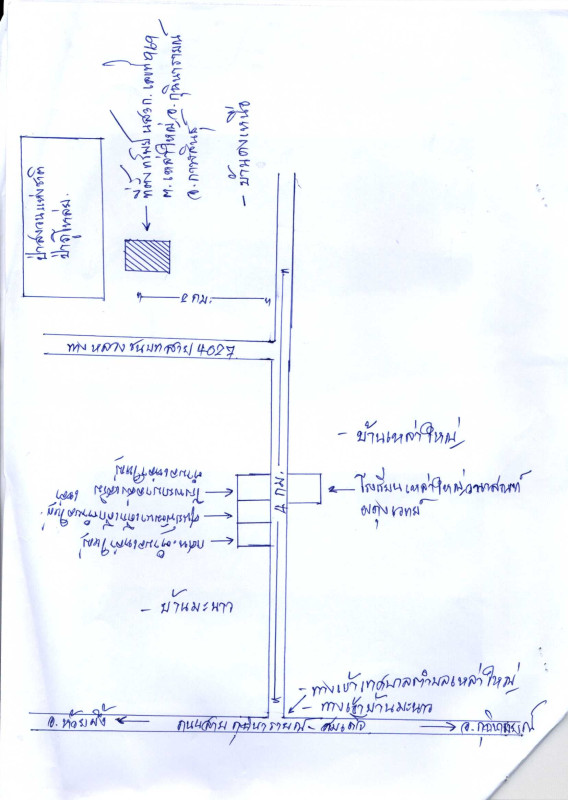 ที่ตั้งทรัพย์ นส.3 ก. เลขที่ 969
ต.เหล่าใหญ่ อ.กุฉินารายณ์
จ.กาฬสินธุ์
- บ้านดงเหนือ
ป่าสงวนแห่งชาติ
2 กม.
ทางหลวงชนบทสาย 4027
- บ้านเหล่าใหญ่
4 กม.
โรงเรียนเหล่าใหญ่วนาสณฑ์
ผดุงเวทย์
ตำบลเหล่าใหญ่
- บ้านมะนาว
- ทางเข้าเทศบาลตำบลเหล่าใหญ่
- ทางเข้าบ้านมะนาว
อ.ห้วยผึ้ง
ถนนสาย กุฉินารายณ์ - สมเด็จ
อ.กุฉินารายณ์